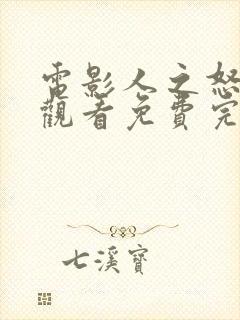 電影人之怒
觀看免費完
七溪寶